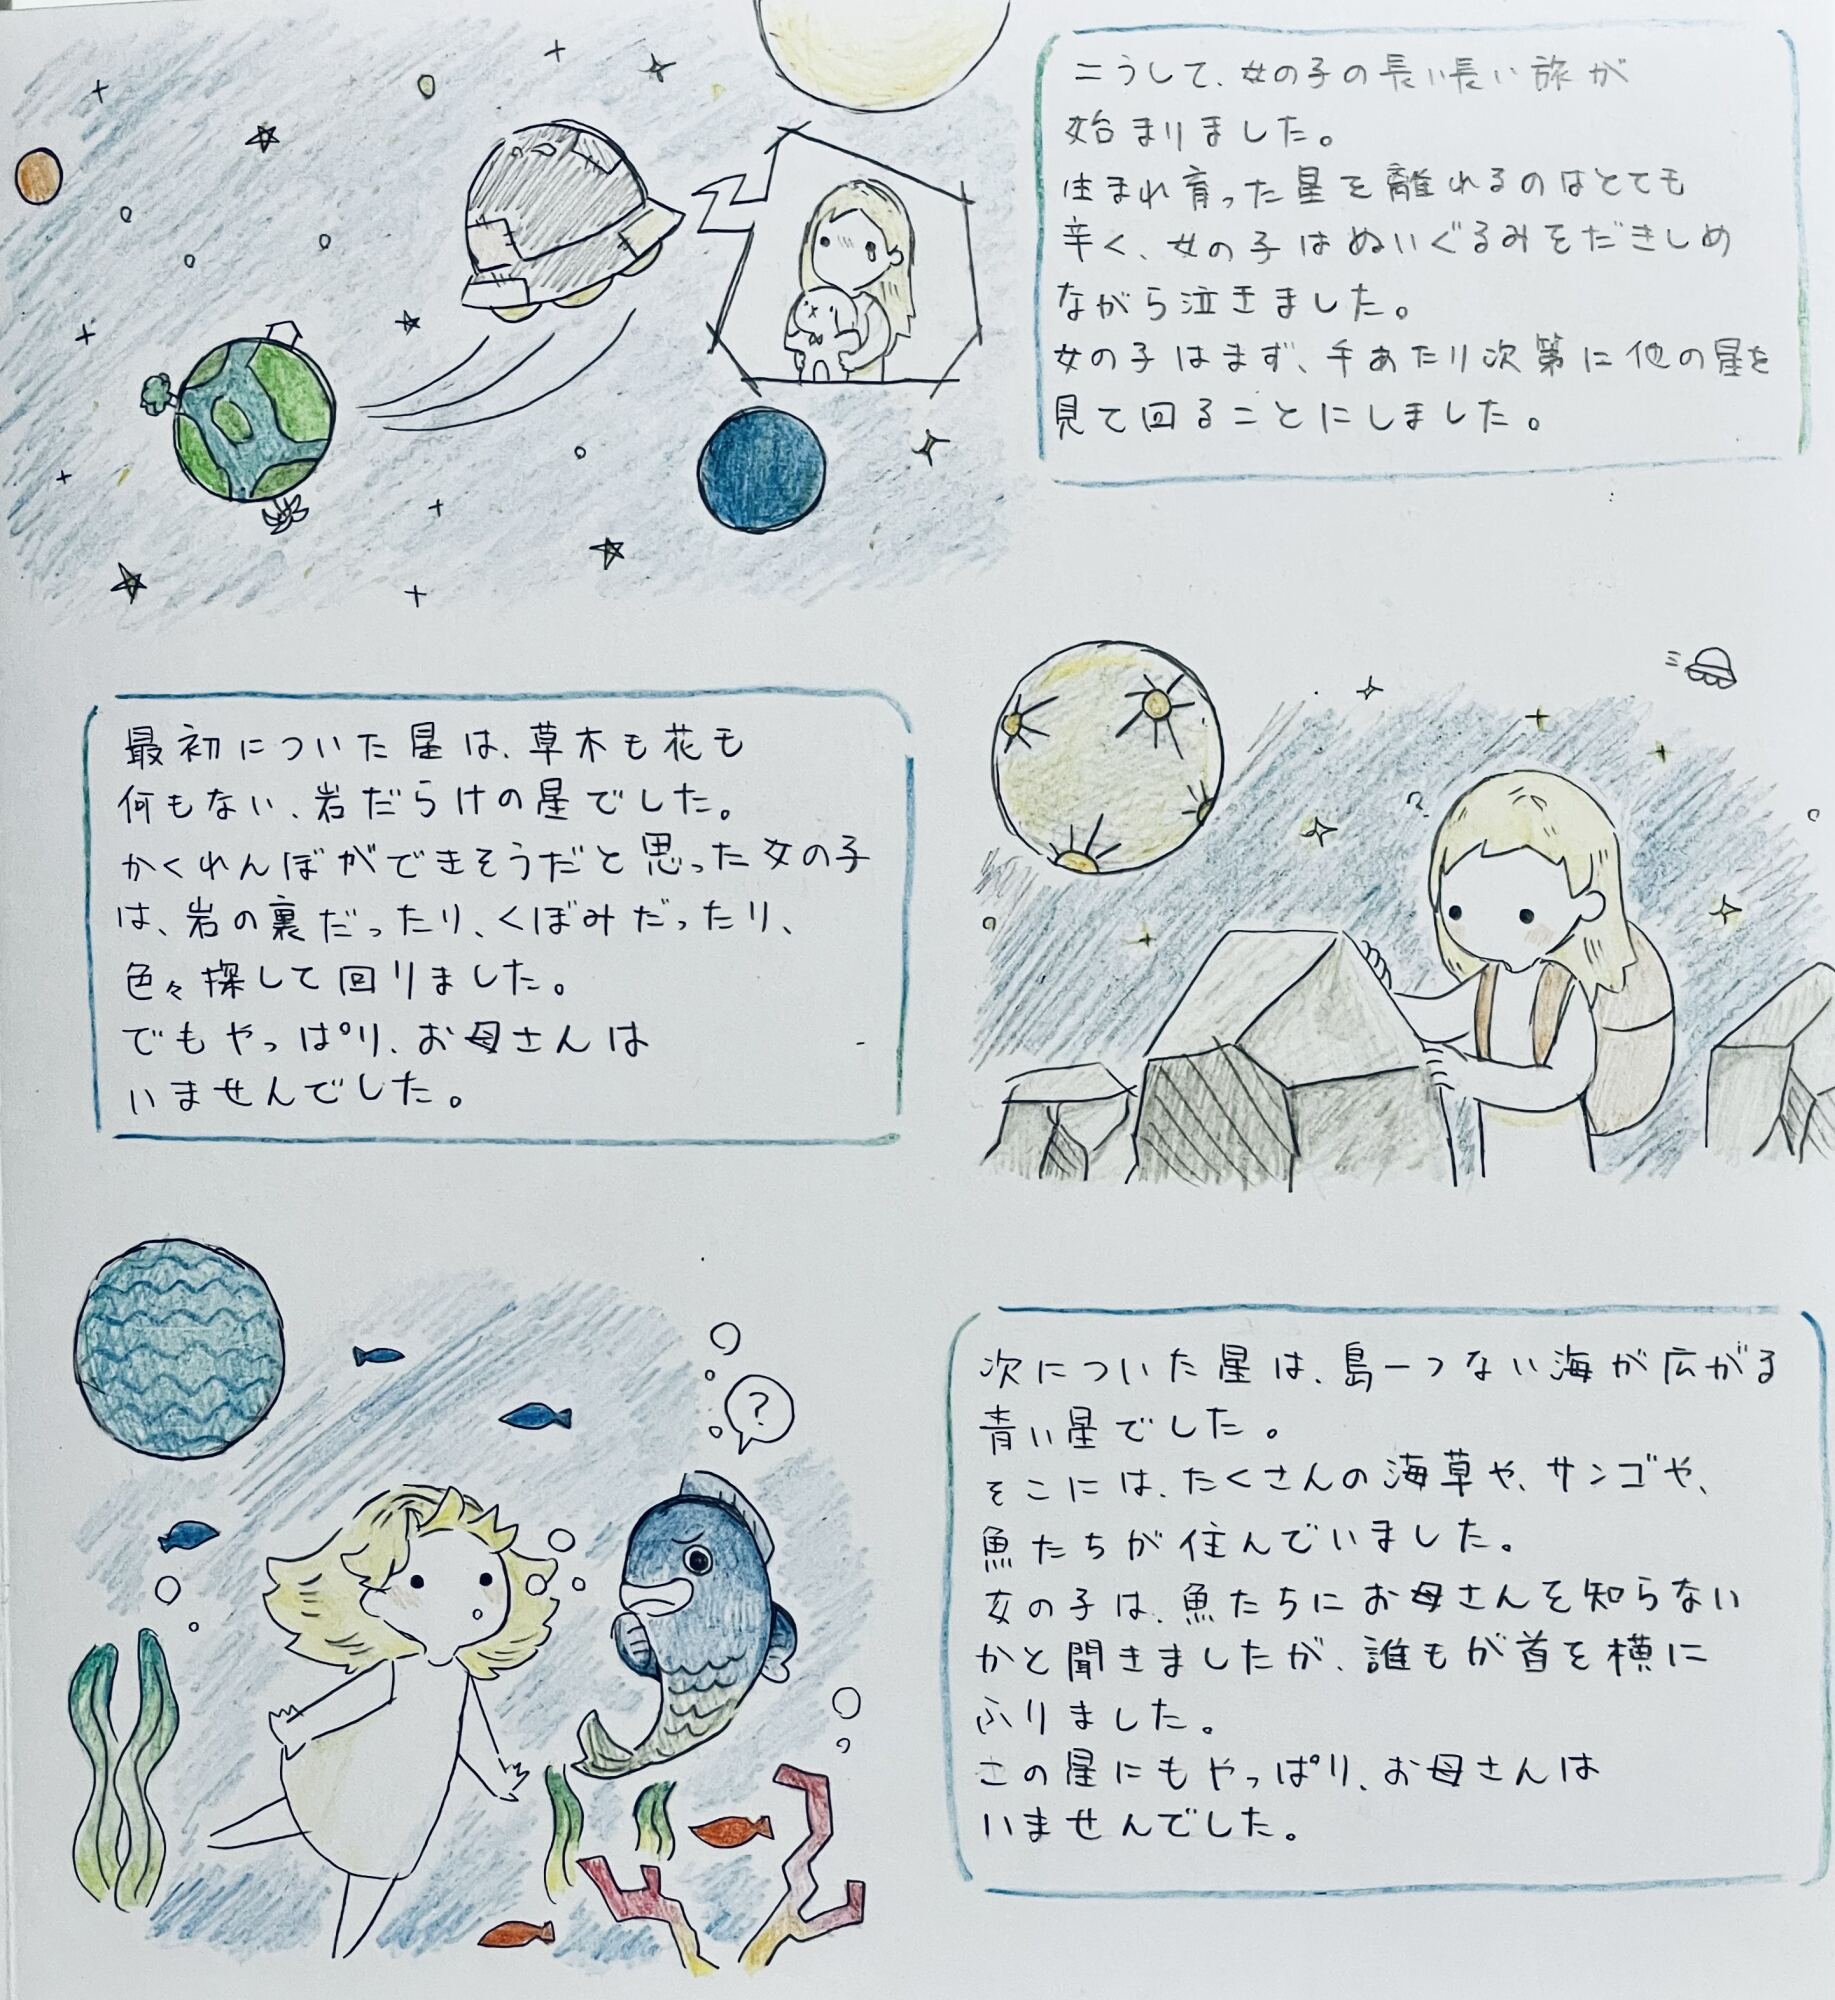 こうして、女の子の長い長い旅が
始まりました。
生まれ育った星を離れるのはとても
辛く、女の子はぬいぐるみをだきしめ
ながら泣きました。
女の子はまず、手あたり次第に他の星を
見て回ることにしました。
最初についた星は、草木も花も
何もない、岩だらけの星でした。
かくれんぼができそうだと思った女の子
は、岩の裏だったり、くぼみだったり、
色々探して回りました。
でもやっぱり、お母さんは
いませんでした。
?
?
次についた星は、島一つない海が広がる
青い星でした。
そこには、たくさんの海草や、サンゴや、
魚たちが住んでいました。
女の子は、魚たちにお母さんを知らない
かと聞きましたが、誰もが首を横に
ふりました。
この星にもやっぱり、お母さんは
いませんでした。